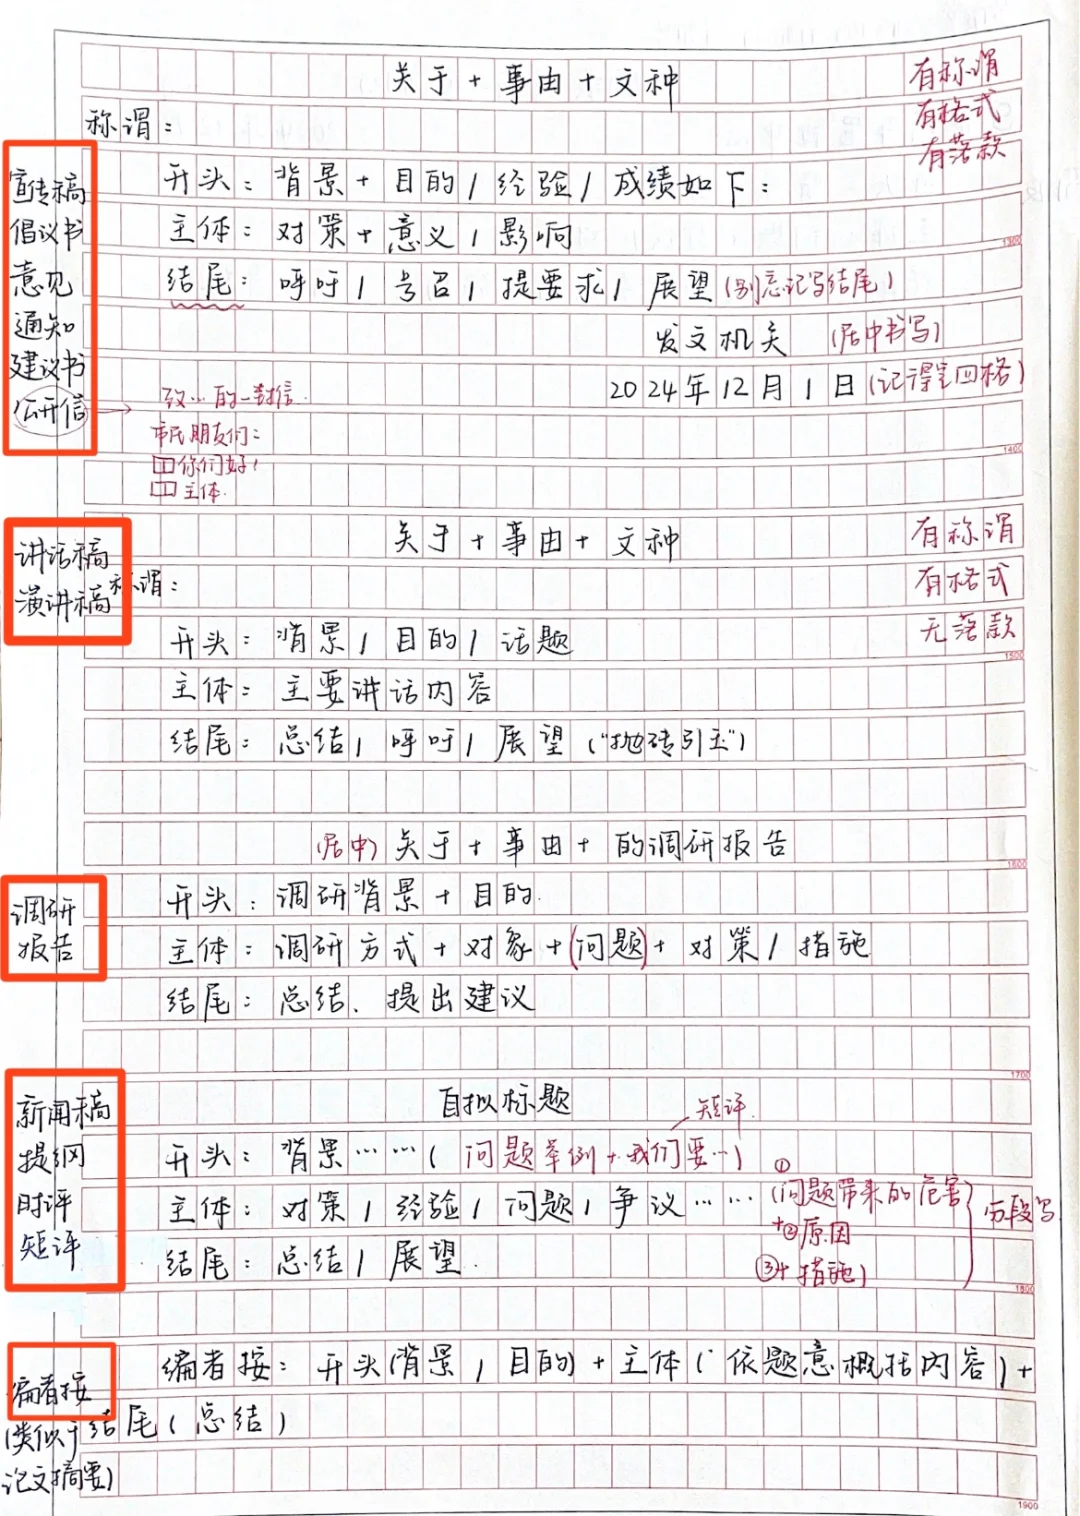 关于+事由+文种
有称谓
有格式
有落款
称谓：
宣传稿
倡议书
意见
通知
建议书
公开信
开头：背景+目的/经验/成绩如下：
主体：对策+意义/影响
1300
结尾：呼吁/号召/提要求/展望(别忘记写结尾)
发文机关 (居中书写)
2024年12月1日(记得空四格)
致…的一封信
市民朋友们：
你们好！
主体.
1400
关于+事由+文种
有称谓
有格式
无落款
讲话稿
演讲稿
称谓：
开头：背景/目的/话题
1500
主体：主要讲话内容
结尾：总结/呼吁/展望("抛砖引玉")
(居中)关于+事由+的调研报告
1600
调研
报告
开头：调研背景+目的.
主体：调研方式+对象+(问题)+对策/措施
结尾：总结、提出建议
1700
新闻稿
提纲
时评
短评
自拟标题
短评.
开头：背景……(问题举例+我们要…)
主体：对策/经验/问题/争议……
①
(问题带来的危害
+②原因
③+措施)
分段写
结尾：总结/展望.
1800
编者按
(类似于
论文摘要)
编者按：开头(背景/目的)+主体(依题意概括内容)+
结尾(总结)
1900